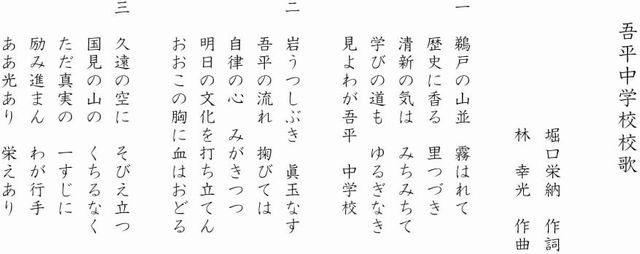 吾平中学校校歌
堀口栄納 作詞
林 幸光 作曲
一 鵜戸の山並 霧はれて
歴史に香る 里つづき
清新の気は みちみちて
学びの道も ゆるぎなき
見よわが吾平 中学校
二 岩うつしぶき 眞玉なす
吾平の流れ 掬びては
自律の心 みがきつつ
明日の文化を打ち立てん
おおこの胸に血はおどる
三 久遠の空に そびえ立つ
国見の山の くちるなく
ただ真実の 一すじに
励み進まん わが行手
ああ光あり 栄えあり